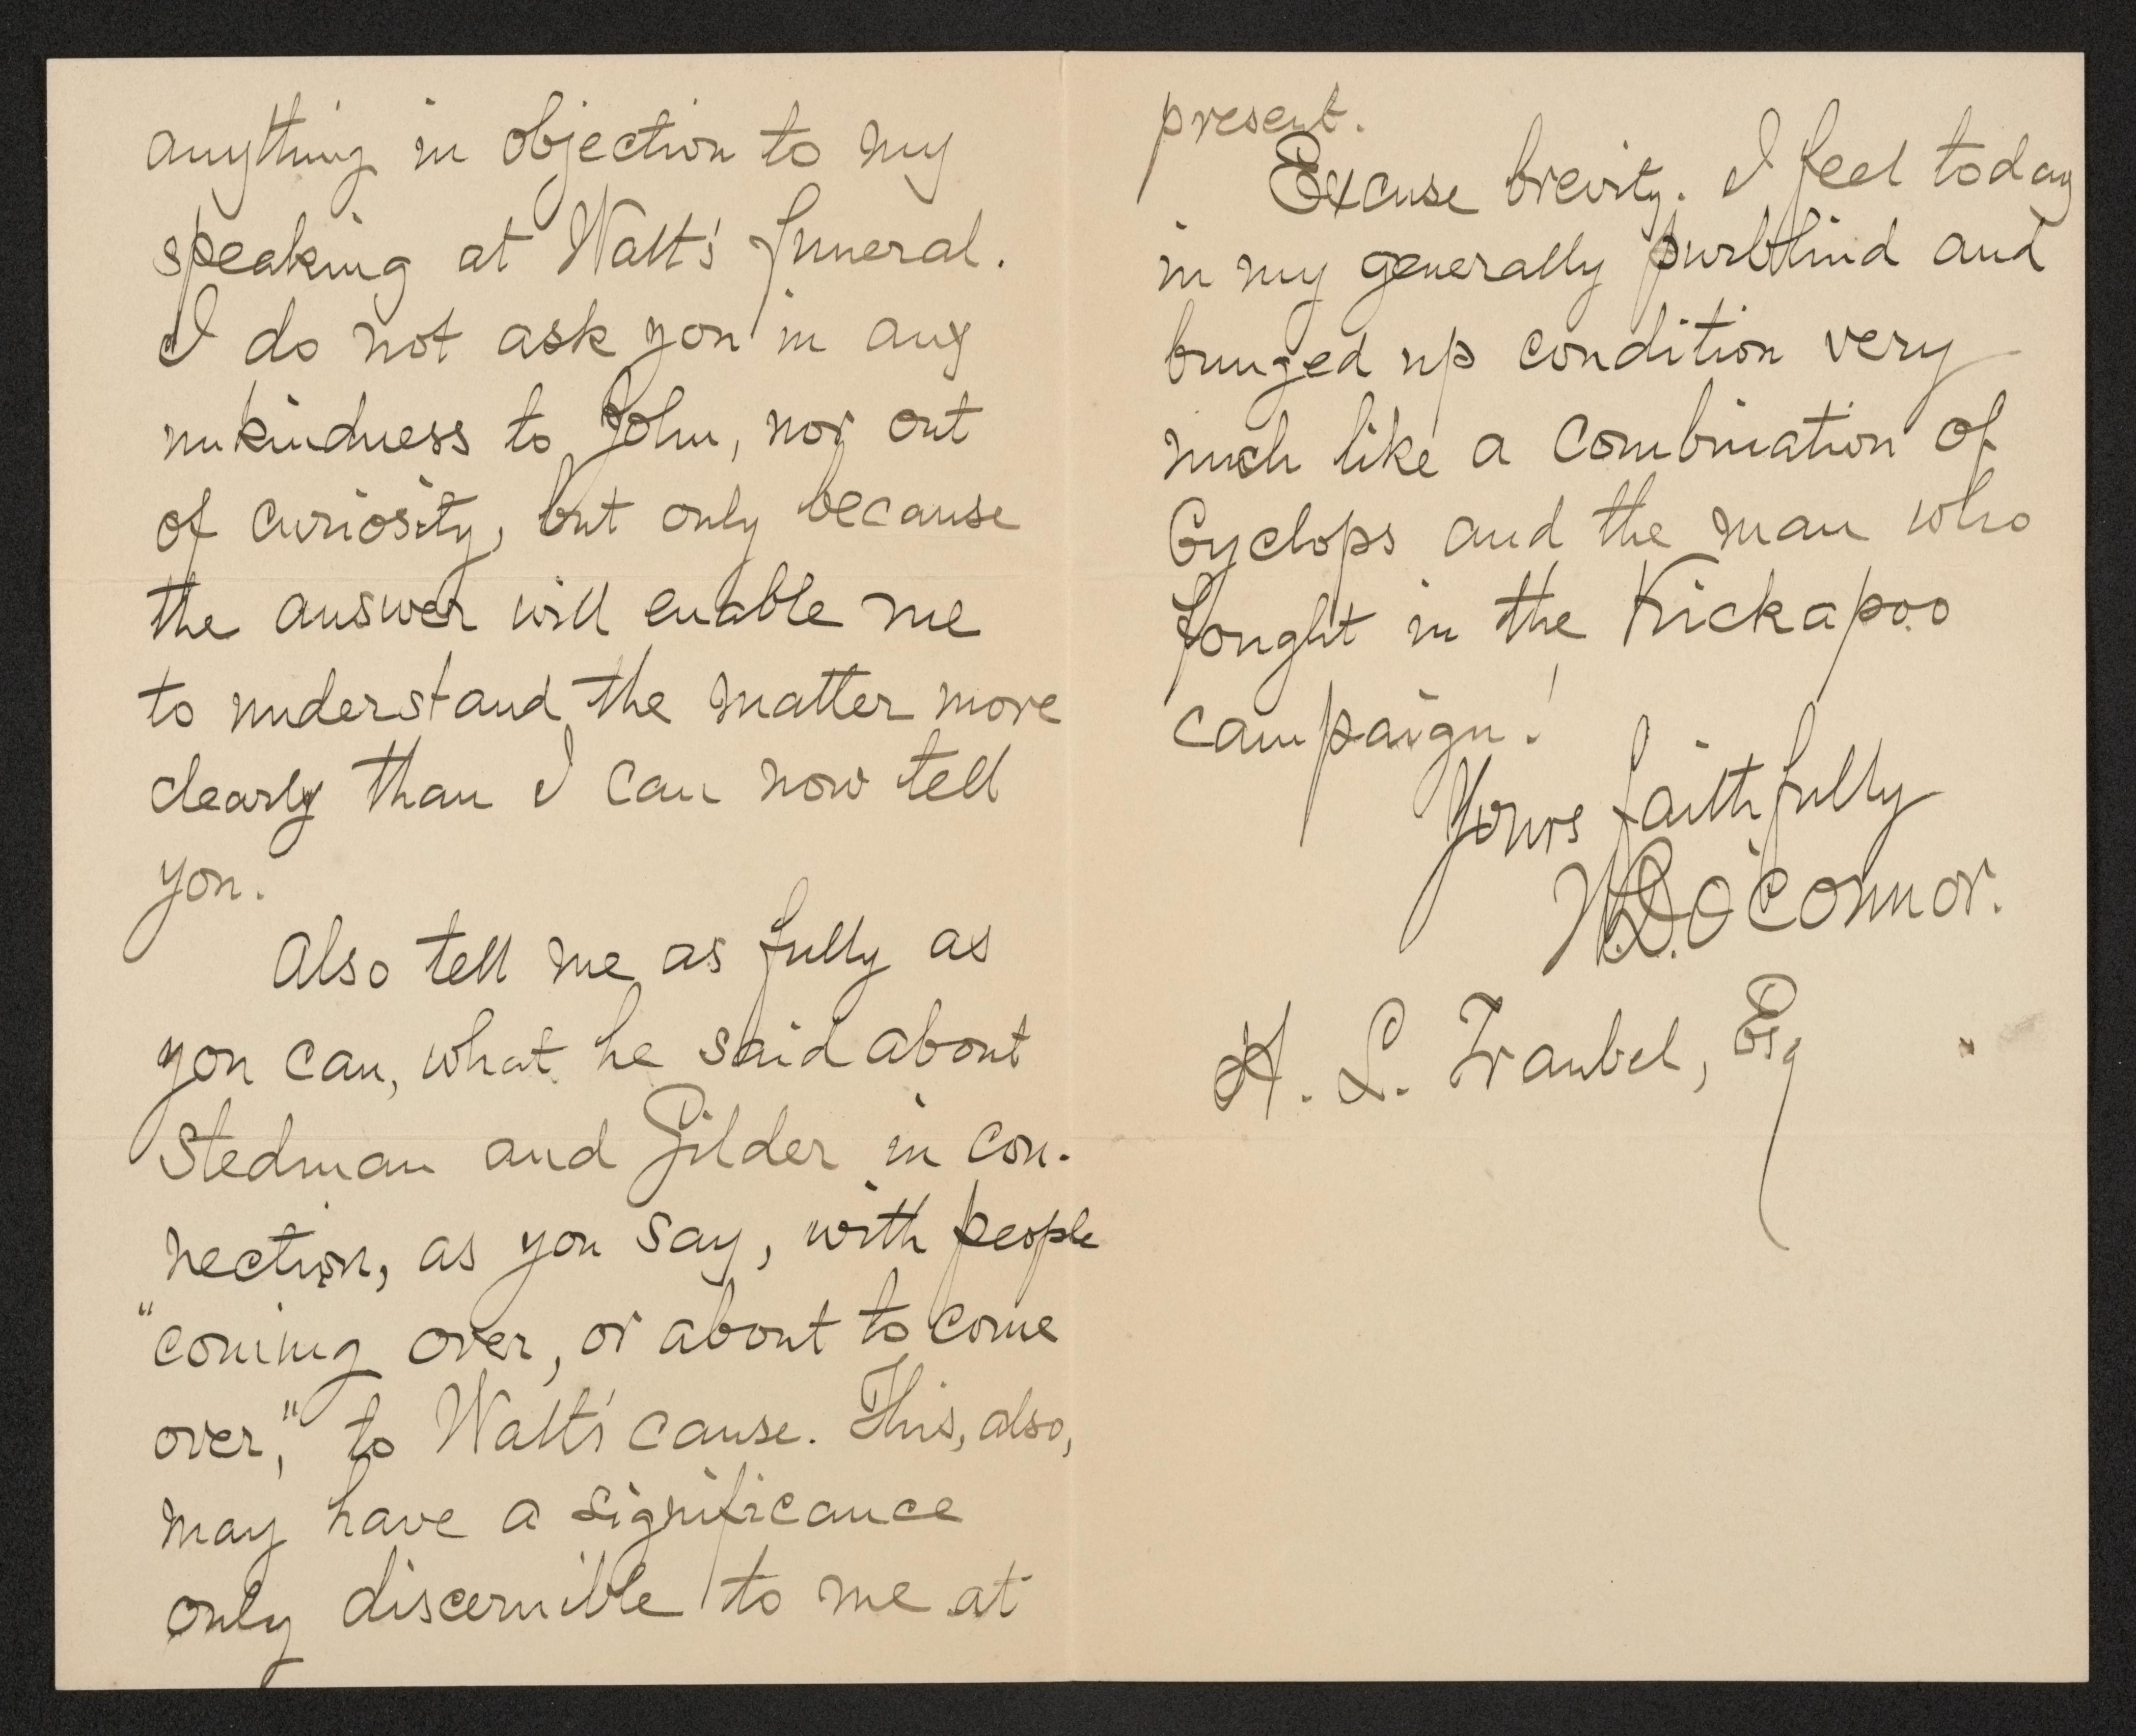 anything in objection to my
speaking at Walt's funeral.
I do not ask you in any
unkindness to John, nor out
of curiosity, but only because
the answer will enable me
to understand the matter more
clearly than I can now tell
you.
Also tell me as fully as
you can, what he said about
Stedman and Gilder in con-
nection, as you say, with people
"coming over, or about to come
over," to Walt's cause. This, also,
may have a significance
only discernible to me at
present.
Excuse brevity. I feel today
in my generally purblind and
bunged up condition very
much like a combination of
Cyclops and the man who
fought in the Kickapoo
campaign!
Yours faithfully
W.D. O'Connor.
H. L. Traubel, Esq